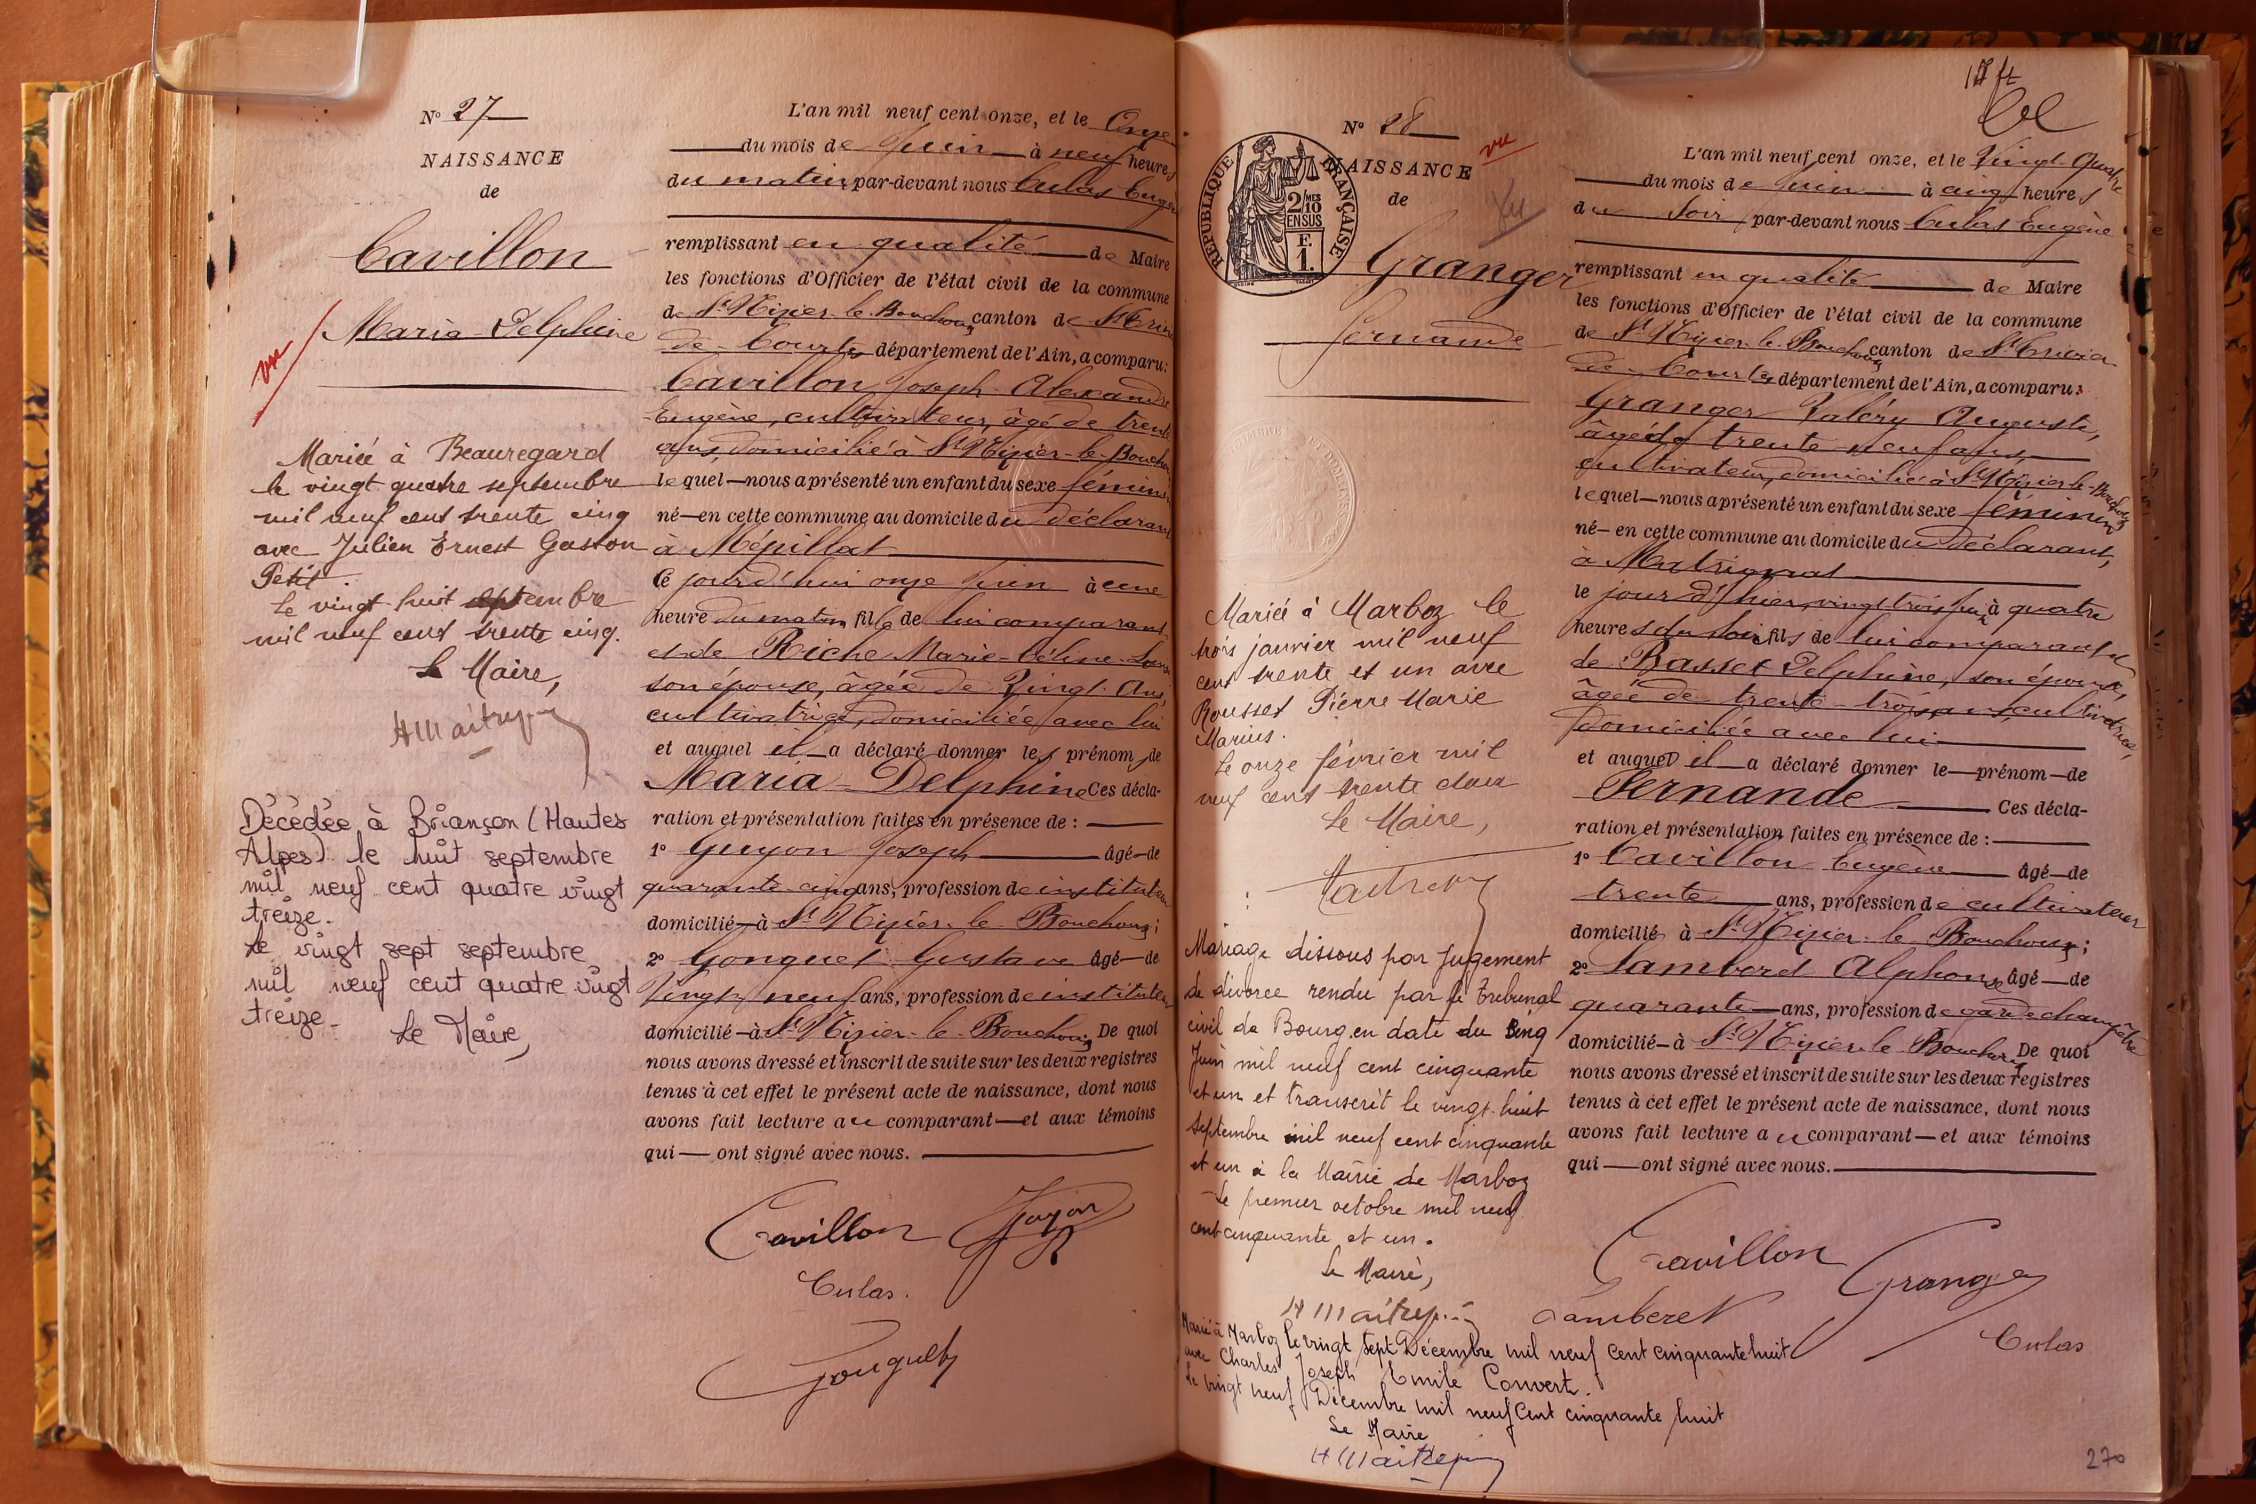 N° 27
NAISSANCE
de
Cavillon
Maria Delphine
vu
Mariée à Beauregard
le vingt quatre septembre
mil neuf cent trente cinq
avec Julien Ernest Gaston
Petit
Le vingt huit septembre
mil neuf cent trente cinq.
Le Maire,
Décédée à Briançon (Hautes
Alpes) le huit septembre
mil neuf cent quatre vingt
treize.
Le vingt sept septembre
mil neuf cent quatre vingt
treize.
Le Maire,
L'an mil neuf cent onze, et le Onze
du mois de Juin à neuf heures
du matin par-devant nous Culas Eugène
remplissant en qualité de Maire
les fonctions d'Officier de l'état civil de la commune
de St Nizier-le-Bouchoux canton de St Trivier
de-Courtes département de l'Ain, a comparu:
Cavillon Joseph-Alexandre
Eugène, cultivateur, âgé de trente
ans, domicilié à St Nizier-le-Bouchoux
lequel nous a présenté un enfant du sexe féminin
né en cette commune au domicile du déclarant
à Mépillat
Ce jourd'hui onze Juin à une
heure du matin fille de lui comparant
et de Riche Marie-Céline
son épouse, âgée de Vingt Ans,
cultivatrice, domiciliée avec lui
et auquel il a déclaré donner les prénom de
Maria-Delphine Ces décla-
ration et présentation faites en présence de :
1° Guyon Joseph âgé de
quarante cinq ans, profession de instituteur
domicilié à St Nizier-le-Bouchoux;
2° Gonguet Gustave âgé de
Vingt neuf ans, profession de instituteur
domicilié à St Nizier-le-Bouchoux De quoi
nous avons dressé et inscrit de suite sur les deux registres
tenus à cet effet le présent acte de naissance, dont nous
avons fait lecture au comparant et aux témoins
qui ont signé avec nous.
Cavillon Guyon
Culas.
Gouguet
N° 28
NAISSANCE
de
vu
REPUBLIQUE FRANÇAISE
2/10 MES
EN SUS
F.
1.
Granger
Fernande
Mariée à Marboz le
trois janvier mil neuf
cent trente et un avec
Rousset Pierre Marie
Marius.
Le onze février mil
neuf cent trente deux
Le Maire,
Mariage dissous par jugement
de divorce rendu par le tribunal
civil de Bourg en date du cinq
Juin mil neuf cent cinquante
et un et transcrit le vingt-huit
septembre mil neuf cent cinquante
et un à la Mairie de Marboz
Le premier octobre mil neuf
cent cinquante et un.
Le Maire,
Marié à Marboz le vingt sept Décembre mil neuf cent cinquante huit
avec Charles Joseph Emile Convert.
Le vingt neuf Décembre mil neuf Cent cinquante huit
Le Maire
L'an mil neuf cent onze, et le Vingt-Quatre
du mois de Juin à cinq heures
du Soir par-devant nous Culas Eugène
remplissant en qualité de Maire
les fonctions d'Officier de l'état civil de la commune
de St Nizier-le-Bouchoux canton de St Trivier
de-Courtes département de l'Ain, a comparu :
Granger Valéry Auguste,
âgé de trente neuf ans
cultivateur, domicilié à St Nizier-le-Bouchoux
lequel nous a présenté un enfant du sexe féminin
né en cette commune au domicile du déclarant,
à
le jour d'hier, vingt trois Juin à quatre
heures du soir fils de lui comparant et
de Basset Delphine, son épouse,
âgée de trente-trois ans, cultivatrice,
domiciliée avec lui
et auquel il a déclaré donner le prénom de
Fernande Ces décla-
ration et présentation faites en présence de :
1° Cavillon Eugène âgé de
trente ans, profession de cultivateur
domicilié à St Nizier-le-Bouchoux;
2° Alphonse âgé de
quarante ans, profession de garde champêtre
domicilié à St Nizier-le-Bouchoux De quoi
nous avons dressé et inscrit de suite sur les deux registres
tenus à cet effet le présent acte de naissance, dont nous
avons fait lecture au comparant et aux témoins
qui ont signé avec nous.
Cavillon Granger
Lamberet
Culas
270